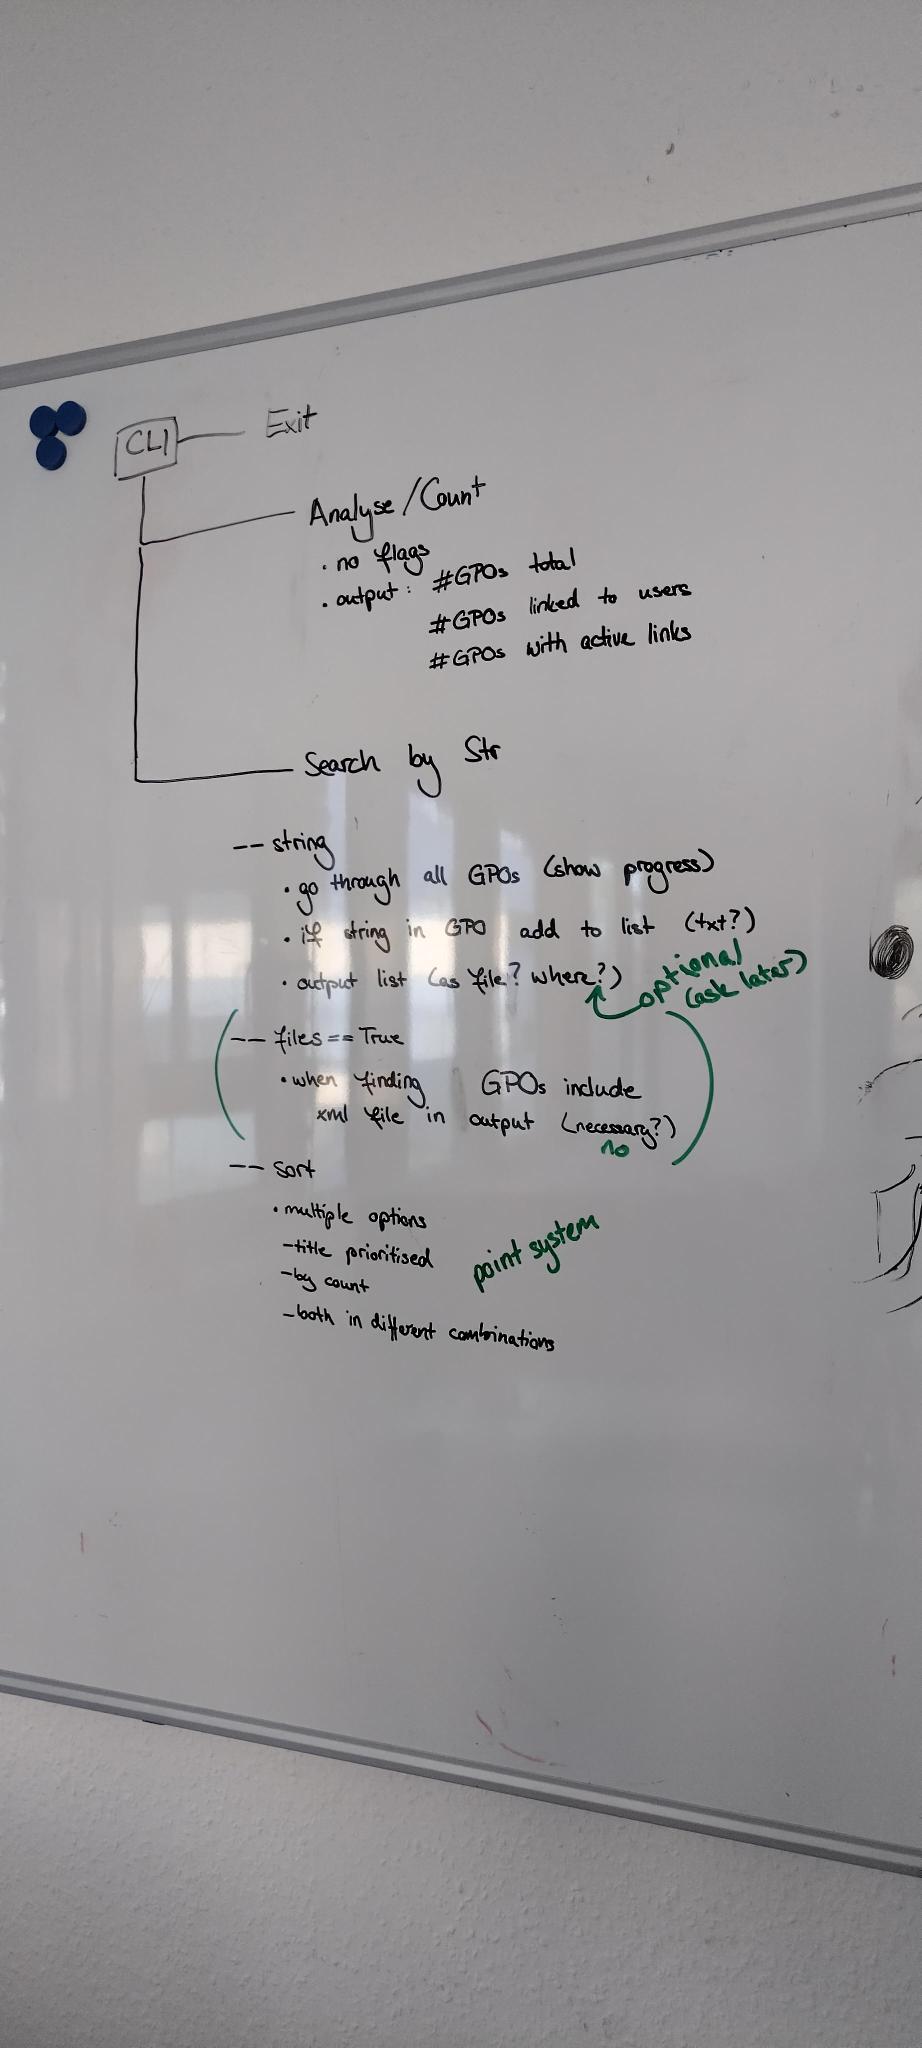 CLI Exit
Analyse/Count
• no flags
• output: #GPOs total
#GPOs linked to users
#GPOs with active links
Search by Str
-- string
• go through all GPOs (show progress)
• if string in GPO add to list (txt?)
• output list (as file? where?)
optional
(ask later)
-- files == True
• when finding GPOs include
xml file in output (necessary?)
no
-- sort
• multiple options
- title prioritised
- by count
- both in different combinations
point system